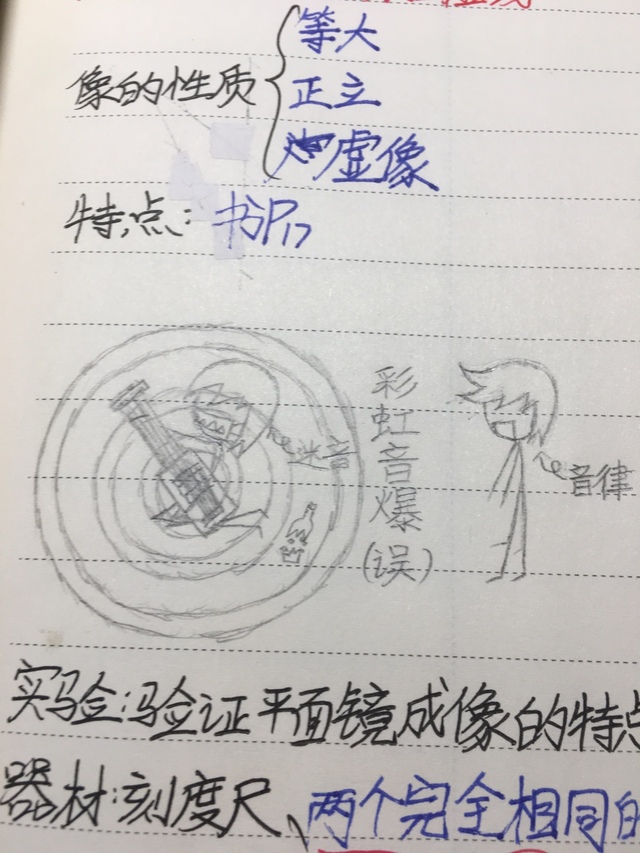 等大
像的性质
正立
虚像
特点:书P17
彩虹音爆(误)
迷音
音律
实验:验证平面镜成像的特点
器材:刻度尺、两个完全相同的